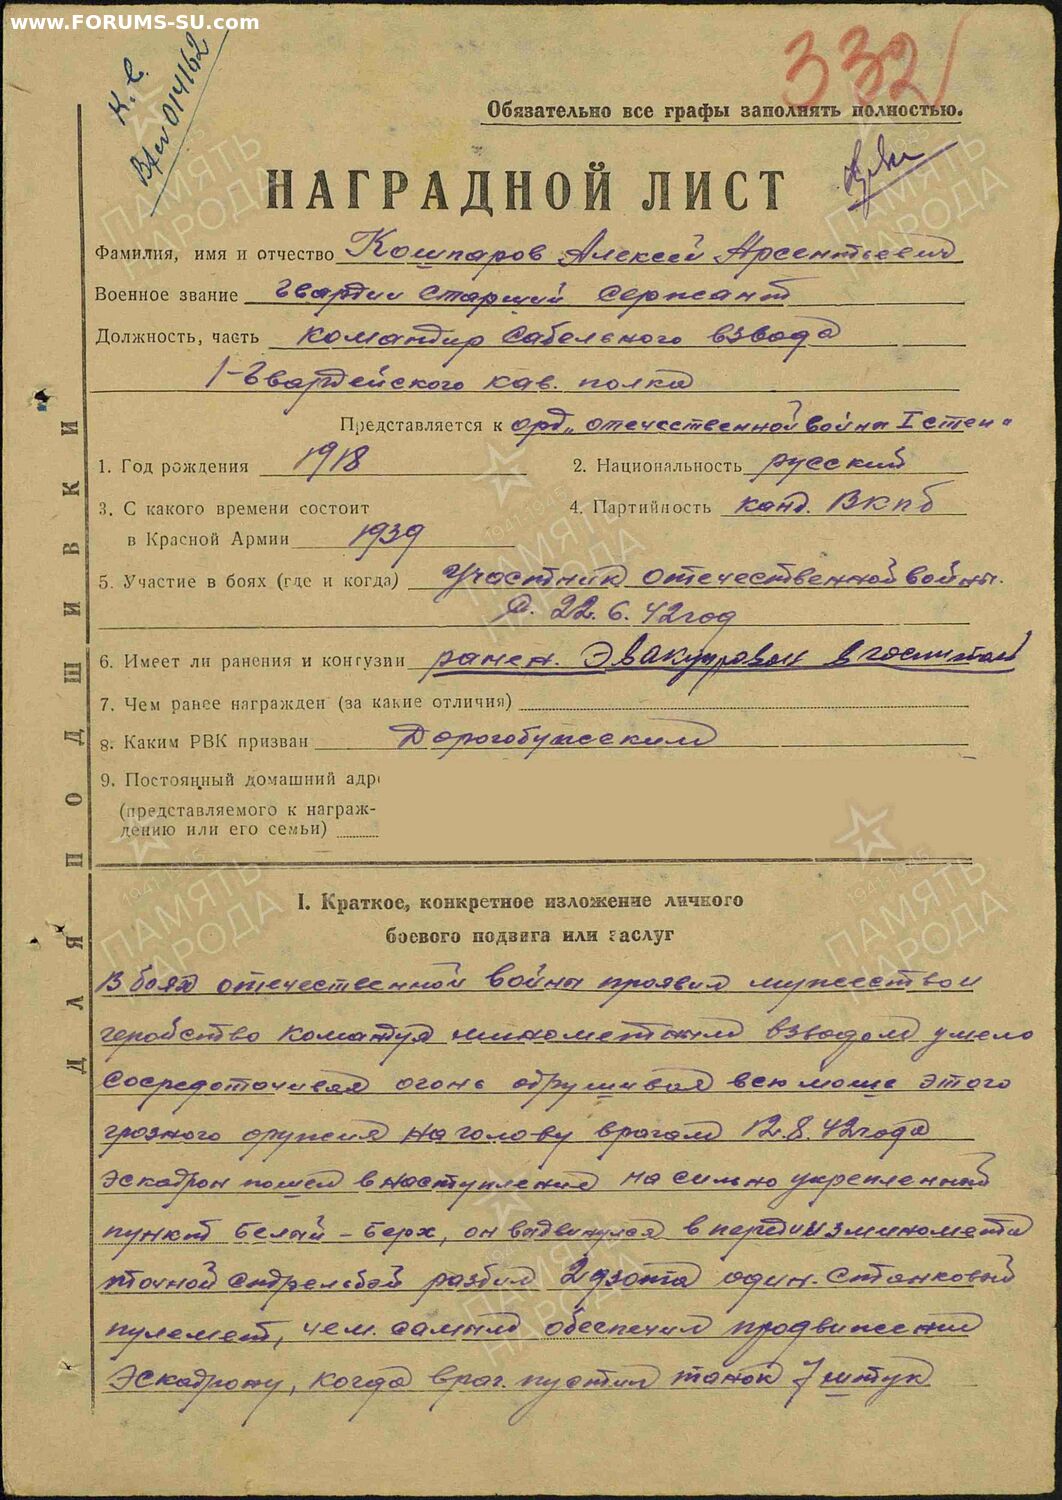 www.FORUMS-SU.com
К. С.
014162
332
Обязательно все графы заполнять полностью.
НАГРАДНОЙ ЛИСТ
Фамилия, имя и отчество Кошпаров Алексей Арсентьевич
Военное звание Гвардии Старший сержант
Должность, часть командир Сабельного взвода
1-Гвардейского кав. полка
Представляется к орд „отечественной война I степ“
1. Год рождения 1918
2. Национальность русский
3. С какого времени состоит
в Красной Армии 1939
4. Партийность канд. ВКПб
5. Участие в боях (где и когда) Участник отечественной войны.
с. 22.6.42год
6. Имеет ли ранения и контузии ранен. Эвакуирован в госпиталь
7. Чем ранее награжден (за какие отличия)
8. Каким РВК призван Дорогобужским
9. Постоянный домашний адре
(представляемого к награж-
дению или его семьи)
ДЛЯ ПОДШИВКИ
I. Краткое, конкретное изложение личного
боевого подвига или заслуг
В боях отечественной войны проявил мужество и
геройство командуя минометным взводом умело
сосредотачивая огонь обрушивал всю мощь этого
грозного оружия на голову врагам 12.8.42года
эскадрон пошел в наступление на сильно укрепленный
пункт Белый-Берх, он выдвинулся в перед и из миномета
точной стрельбой разбил 2 дзота один. Станковый
пулемет, чем. самым обеспечил продвижение
Эскадрону, когда враг. пустил танок 7 штук
ПАМЯТЬ НАРОДА
1941-1945